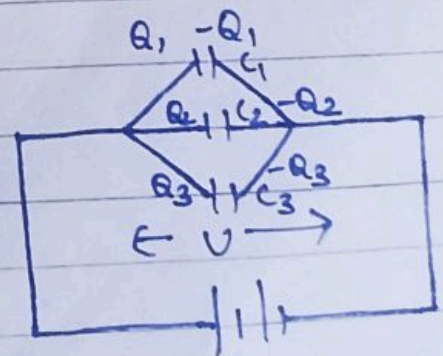 Q1 -Q1
C1
Q2 C2 -Q2
Q3 C3 -Q3
← V →